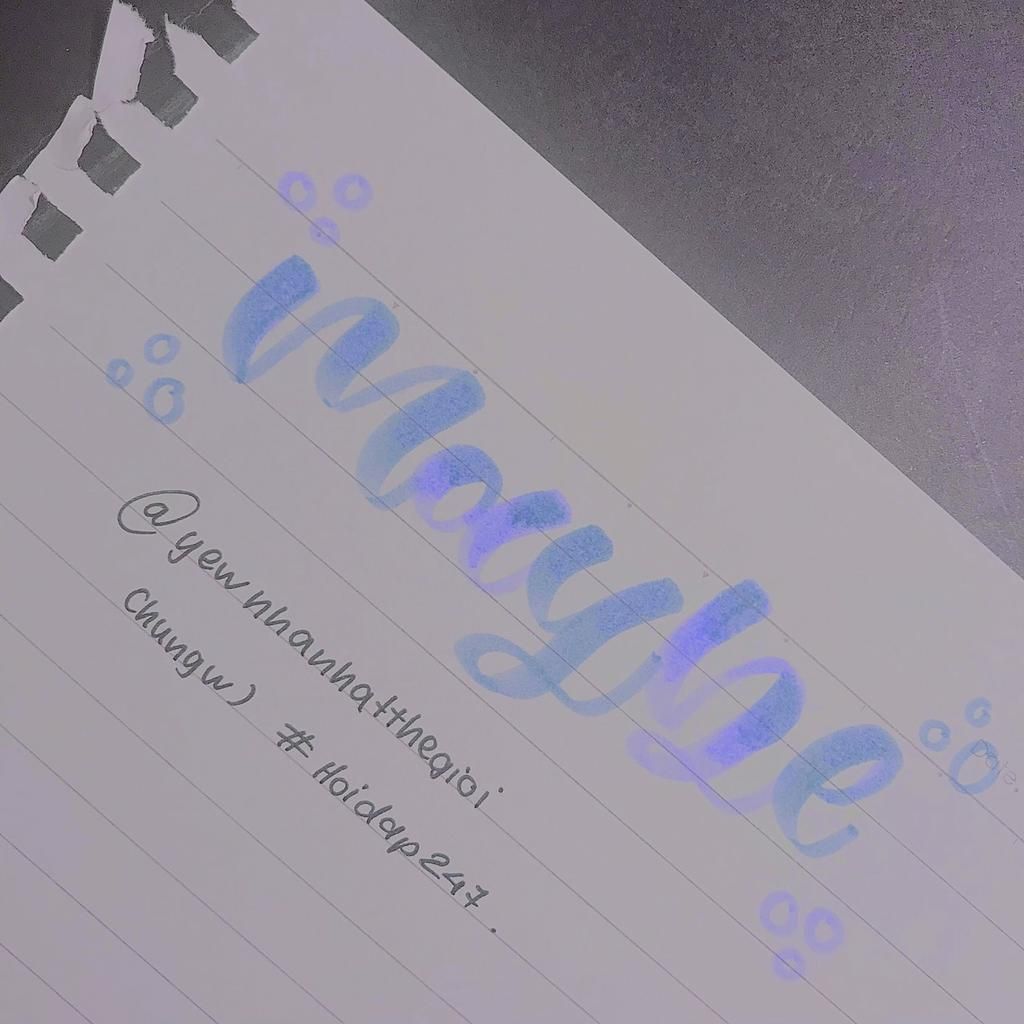 maybe
@yewnhanhatthegioi
Chungw)
#Hoidap247.
Date.